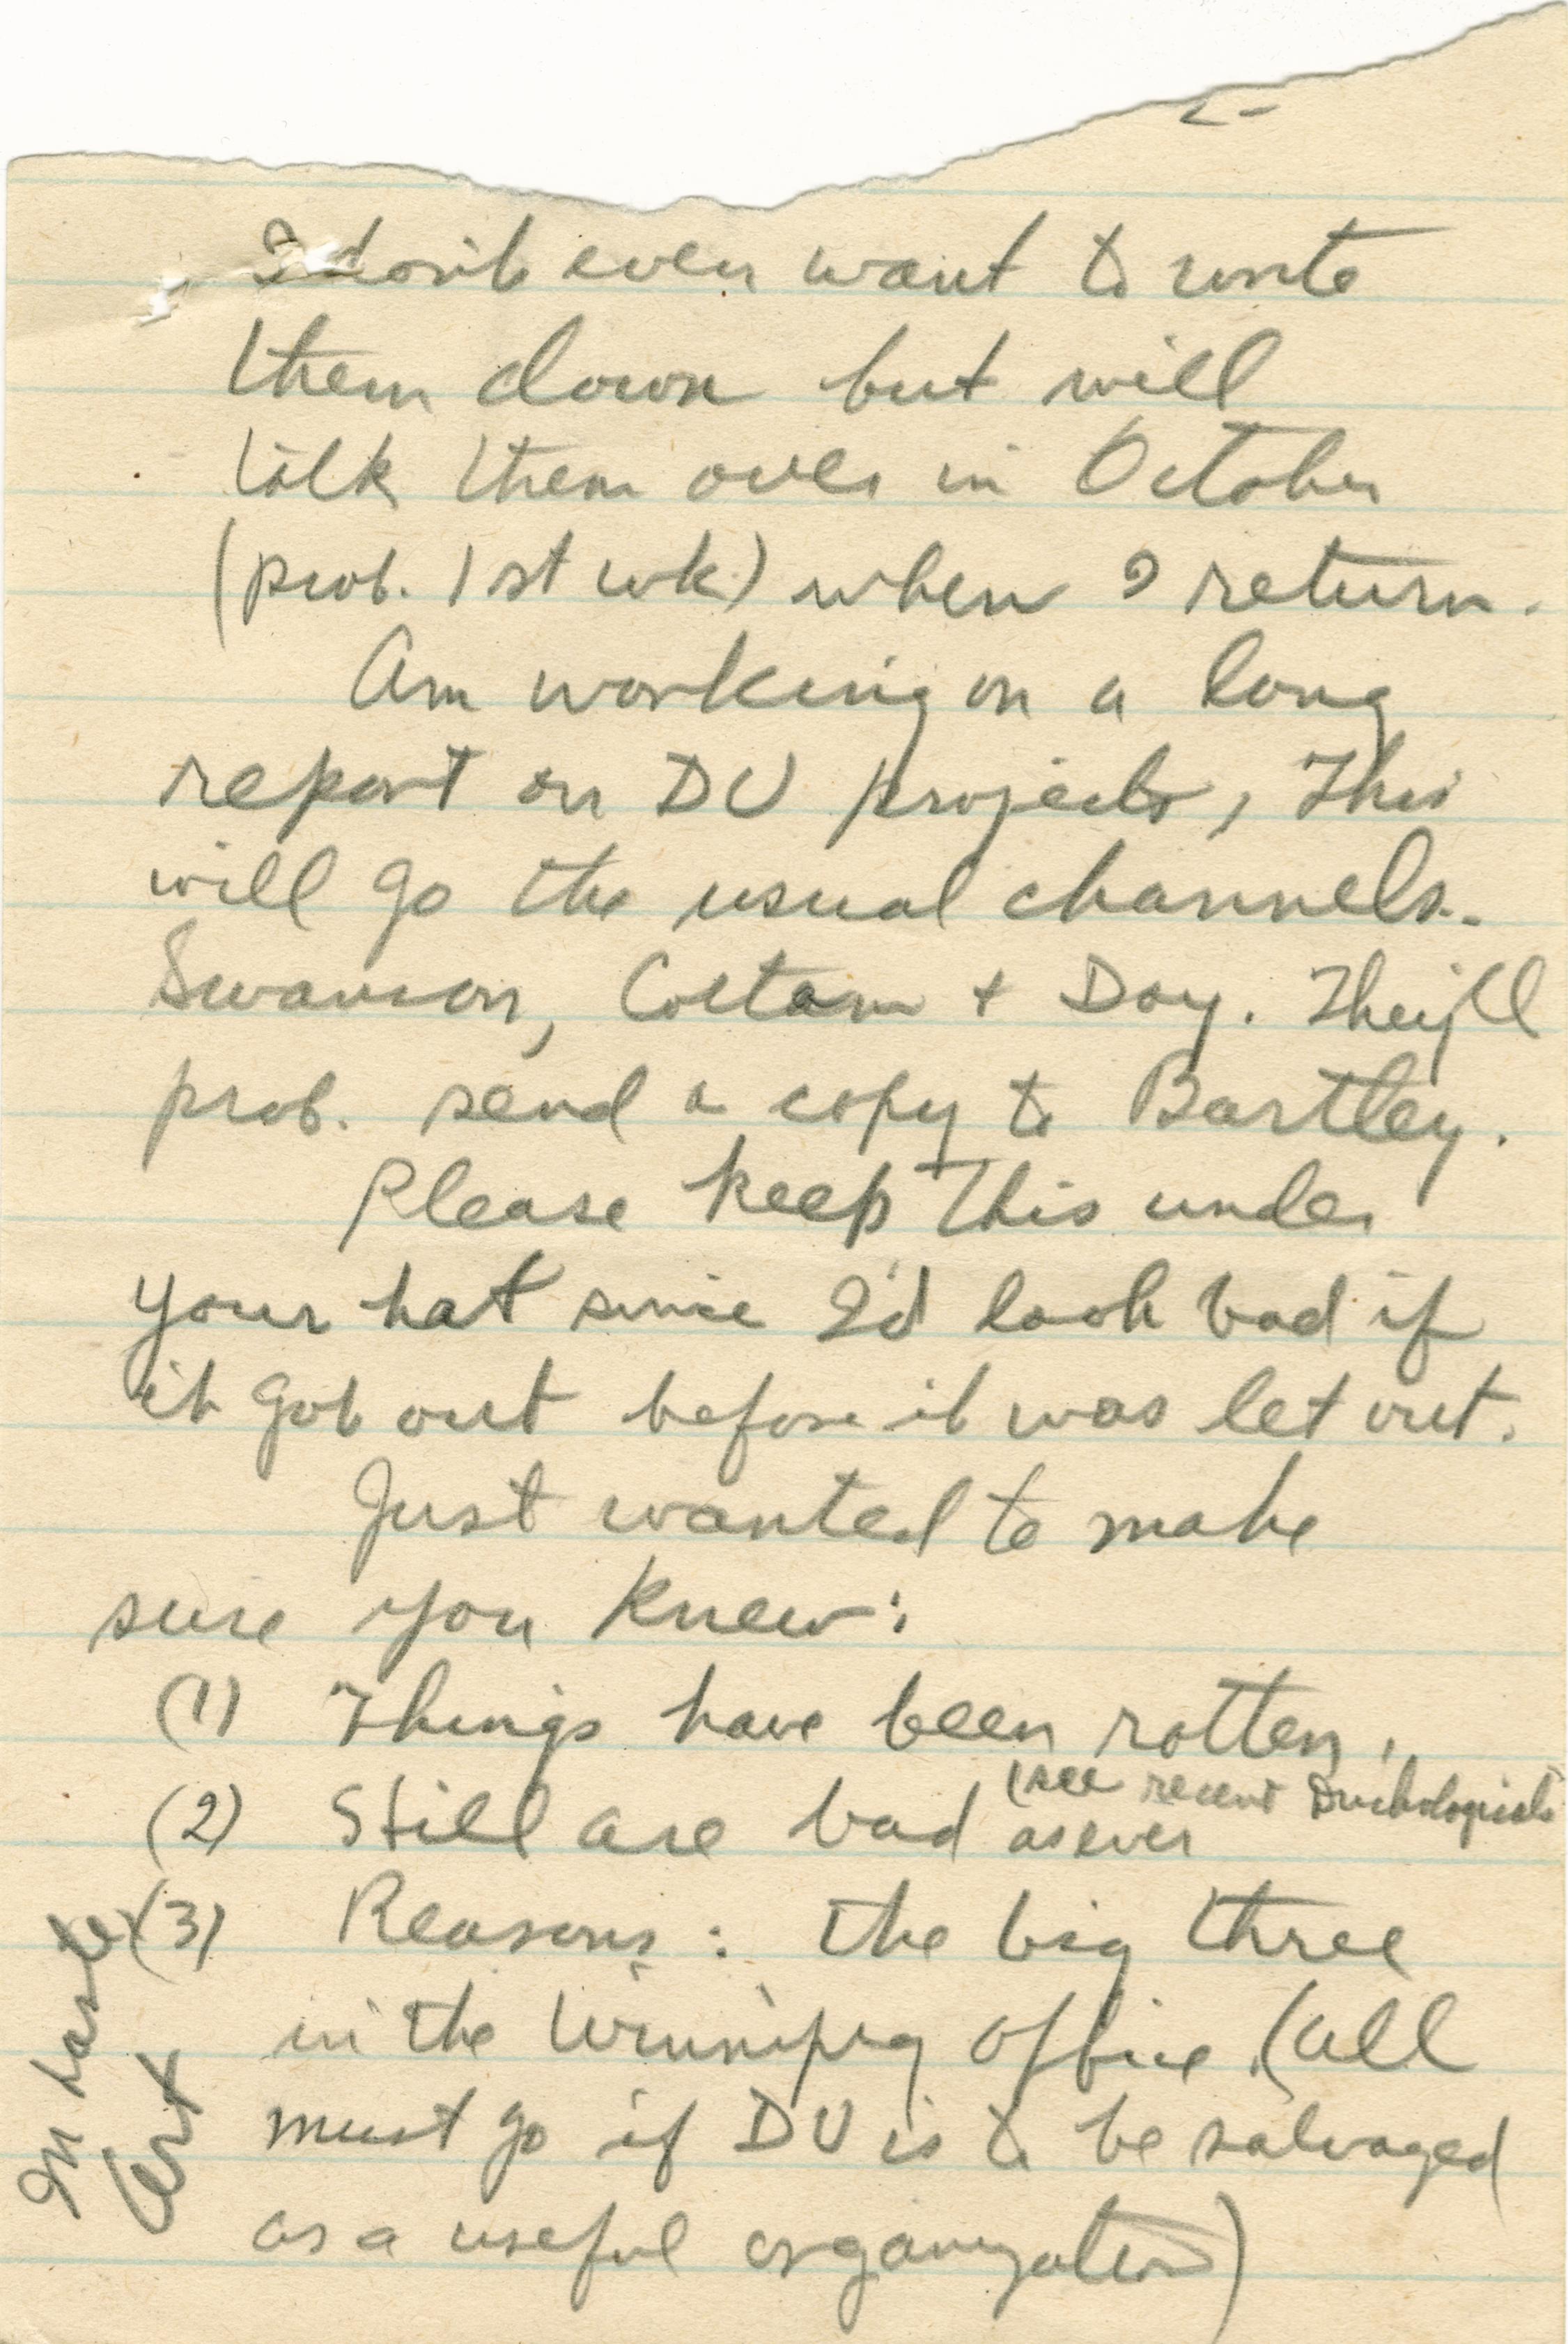 2-
I don't even want to write
them down but will
talk them over in October
(prob. 1st wk) when I return.
Am working on a long
report on DU projects, This
will go the usual channels.-
Swanson, Cottam + Day. They'll
prob. send a copy to Bartley.
Please keep this under
your hat since I'd look bad if
it got out before it was let out.
Just wanted to make
sure you knew:
(1) Things have been rotten.
(see recent Duckologists
(2) Still are bad as ever
(3) Reasons: the big three
in the Winnipeg office (all
must go if DU is to be salvaged
as a useful organization)
In haste
Art